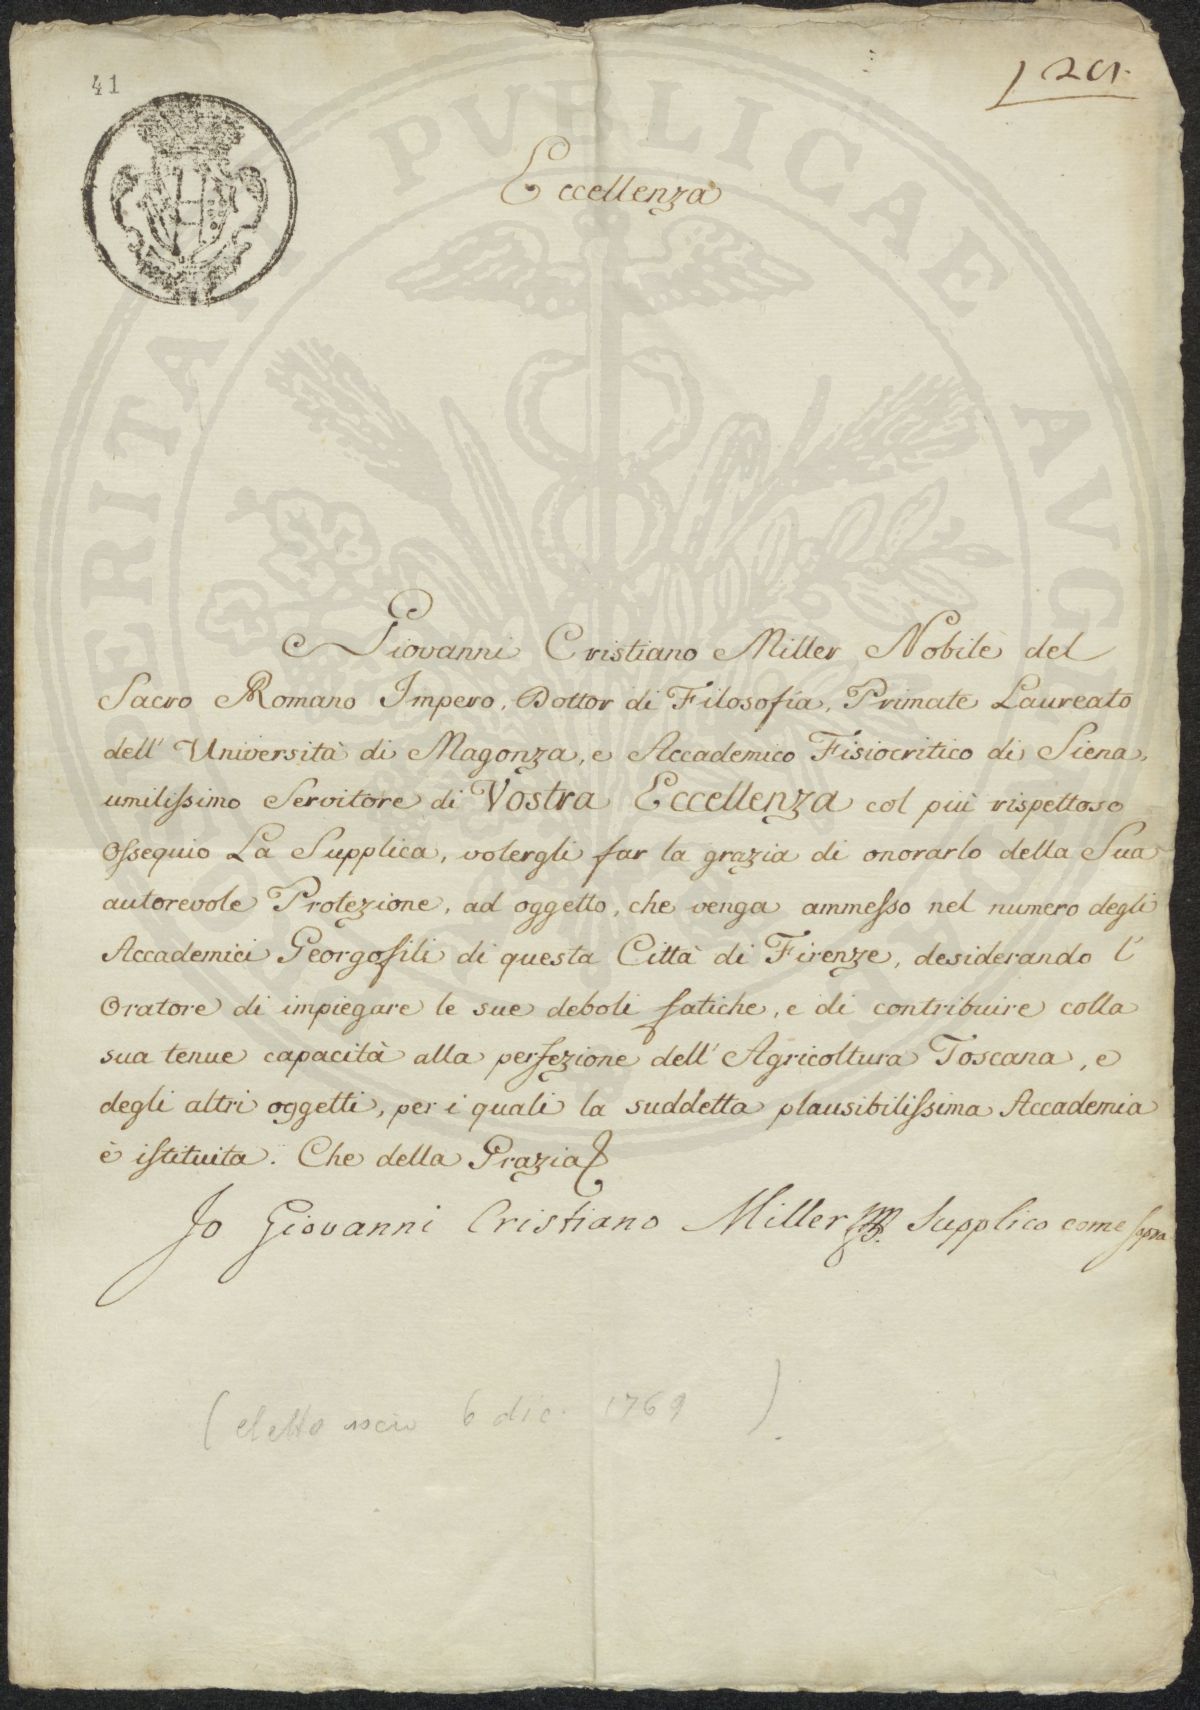 41
Eccellenza
Giovanni Cristiano Miller Nobile del
Sacro Romano Impero, Dottor di Filosofia, Primate Laureato
dell' Università di Magonza, e Accademico Fisiocritico di Siena,
umilissimo Servitore di Vostra Eccellenza col più rispettoso
Ossequio La Supplica, volergli far la grazia di onorarlo della Sua
autorevole Protezione, ad oggetto, che venga ammesso nel numero degli
Accademici Georgofili di questa Città di Firenze, desiderando l'
Oratore di impiegare le sue deboli fatiche, e di contribuire colla
sua tenue capacità alla perfezione dell' Agricoltura Toscana, e
degli altri oggetti, per i quali la suddetta plausibilissima Accademia
è istituita. Che della Grazia
Io Giovanni Cristiano Miller Supplico come sopra
(eletto socio 6 dic. 1769)
PUBLICAE